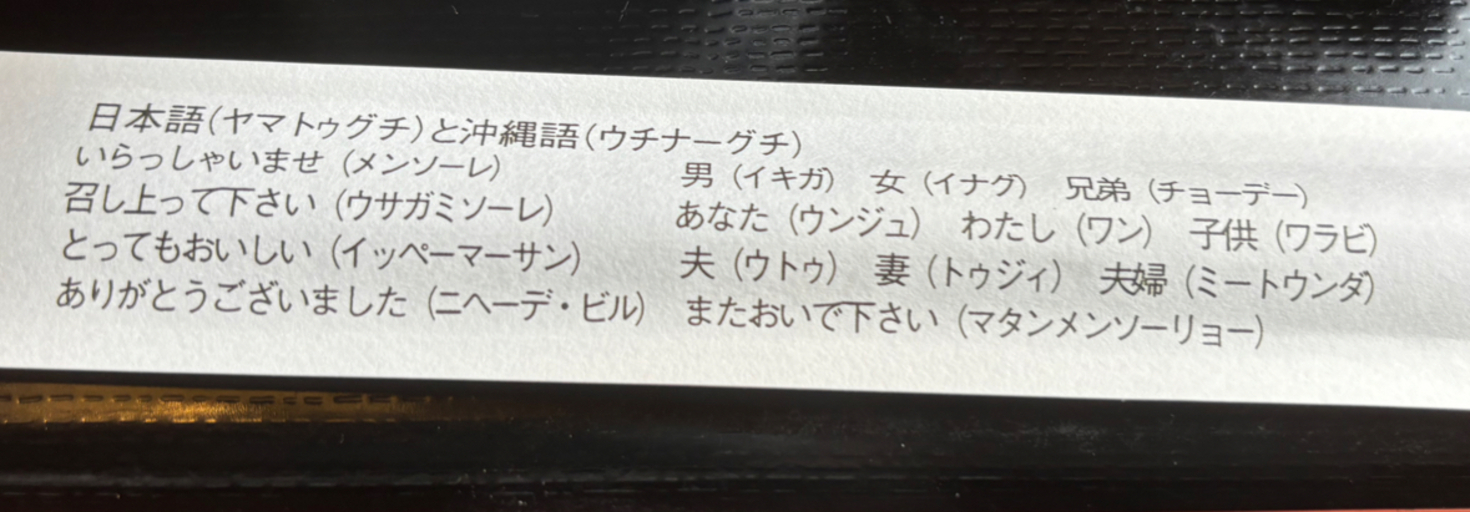 日本語(ヤマトゥグチ)と沖縄語(ウチナーグチ)
いらっしゃいませ (メンソーレ)
召し上って下さい (ウサガミソーレ)
とってもおいしい (イッペーマーサン)
ありがとうございました (ニヘーデ・ビル)
男 (イキガ) 女 (イナグ) 兄弟 (チョーデー)
あなた (ウンジュ) わたし (ワン) 子供 (ワラビ)
夫 (ウトゥ) 妻 (トゥジィ) 夫婦 (ミートウンダ)
またおいで下さい (マタンメンソーリョー)